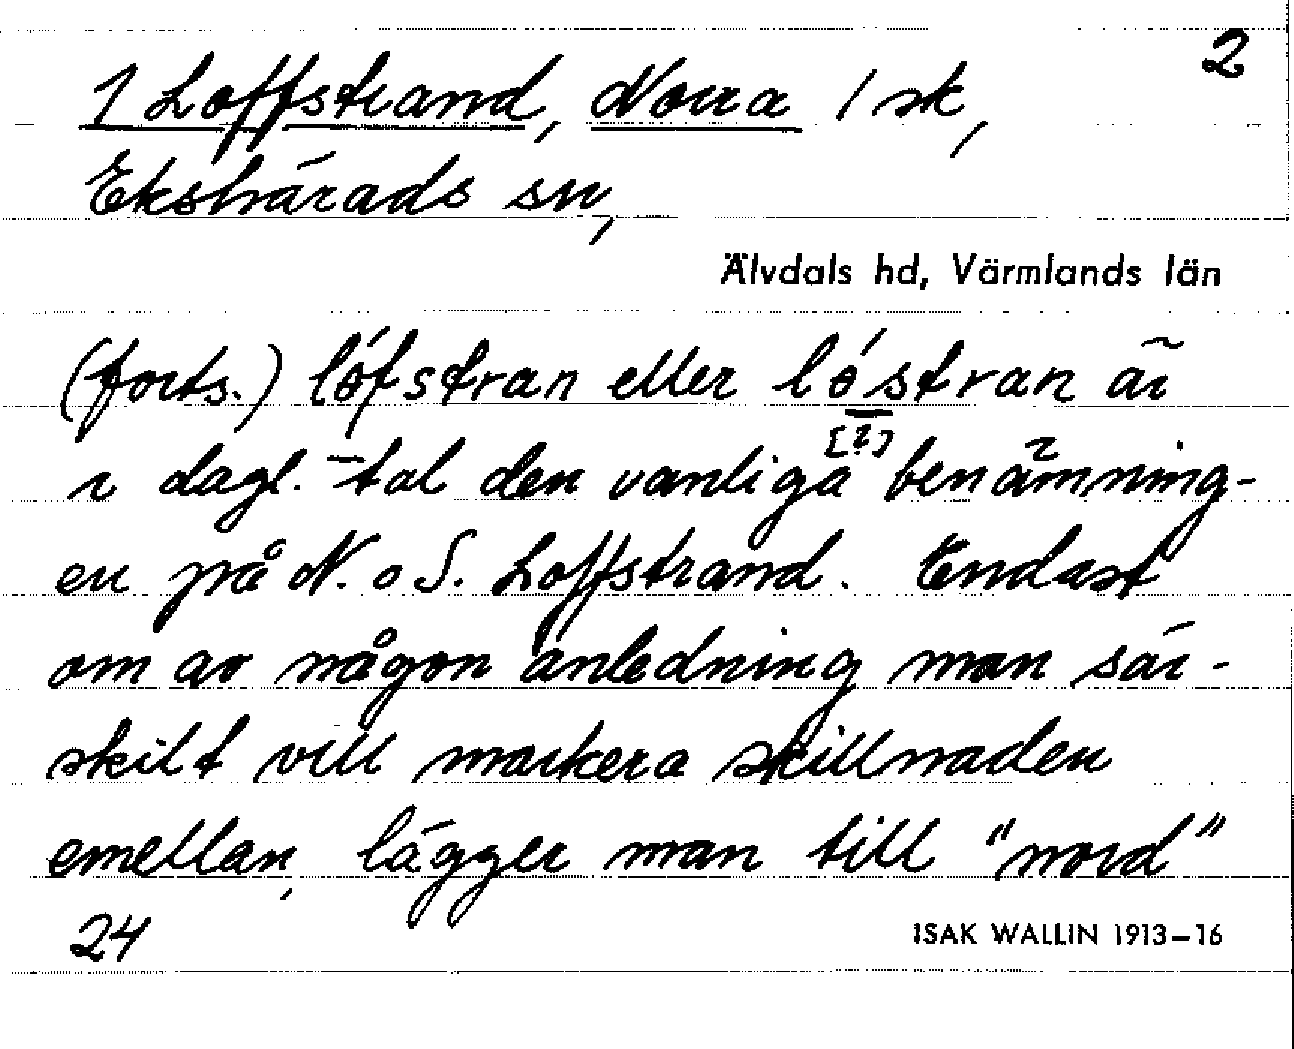 2
1 Loffstrand, Norra / sk,
Ekshärads sn,
Älvdals hd, Värmlands län
(forts.) lófstran eller lóstran är
[?]
i dagl. tal den vanliga benämning-
en på N. o S. Loffstrand. Endast
om av någon anledning man sär-
skilt vill markera skillnaden
emellan, lägger man till "nord"
24
ISAK WALLIN 1913–16